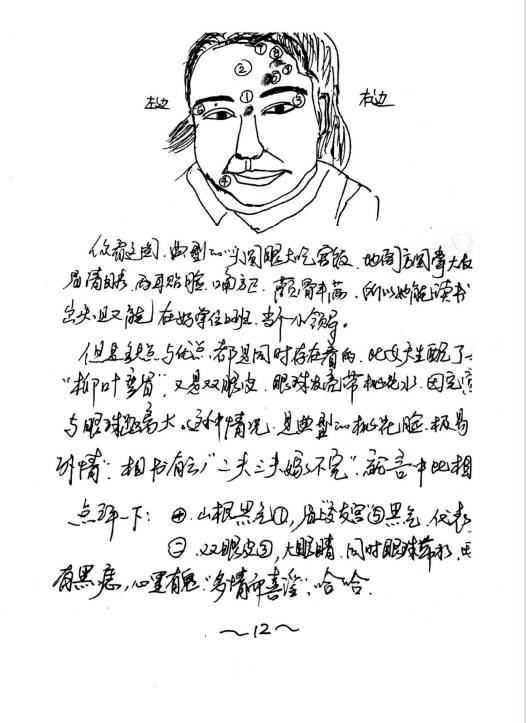 左边
右边
① ⑧
②
①
⑥ ⑤
④
你看这图，典型的"头圆眼大吃官饭，地阁方圆掌大权
眉清目秀，两耳贴脸，嘴方正，颧骨丰满，所以她能读书
出头，且又能在好单位上班，当个小领导。
但是缺点与优点，都是同时存在着的，此女生配了一
"柳叶弯眉"，又是双眼皮，眼珠发亮带桃花水，因
与眼 距离大。这种情况，是典型的桃花脸，极易
外情"，相书有云："二夫三夫嫁不完"， 言中此相
点评一下：㊀.山根黑气①，眉 友宫⑤黑气，代表
㊁.双眼皮 ，大眼睛，同时眼珠带水，
有黑痣，心里有鬼"多情而喜淫"，哈哈.
～12～